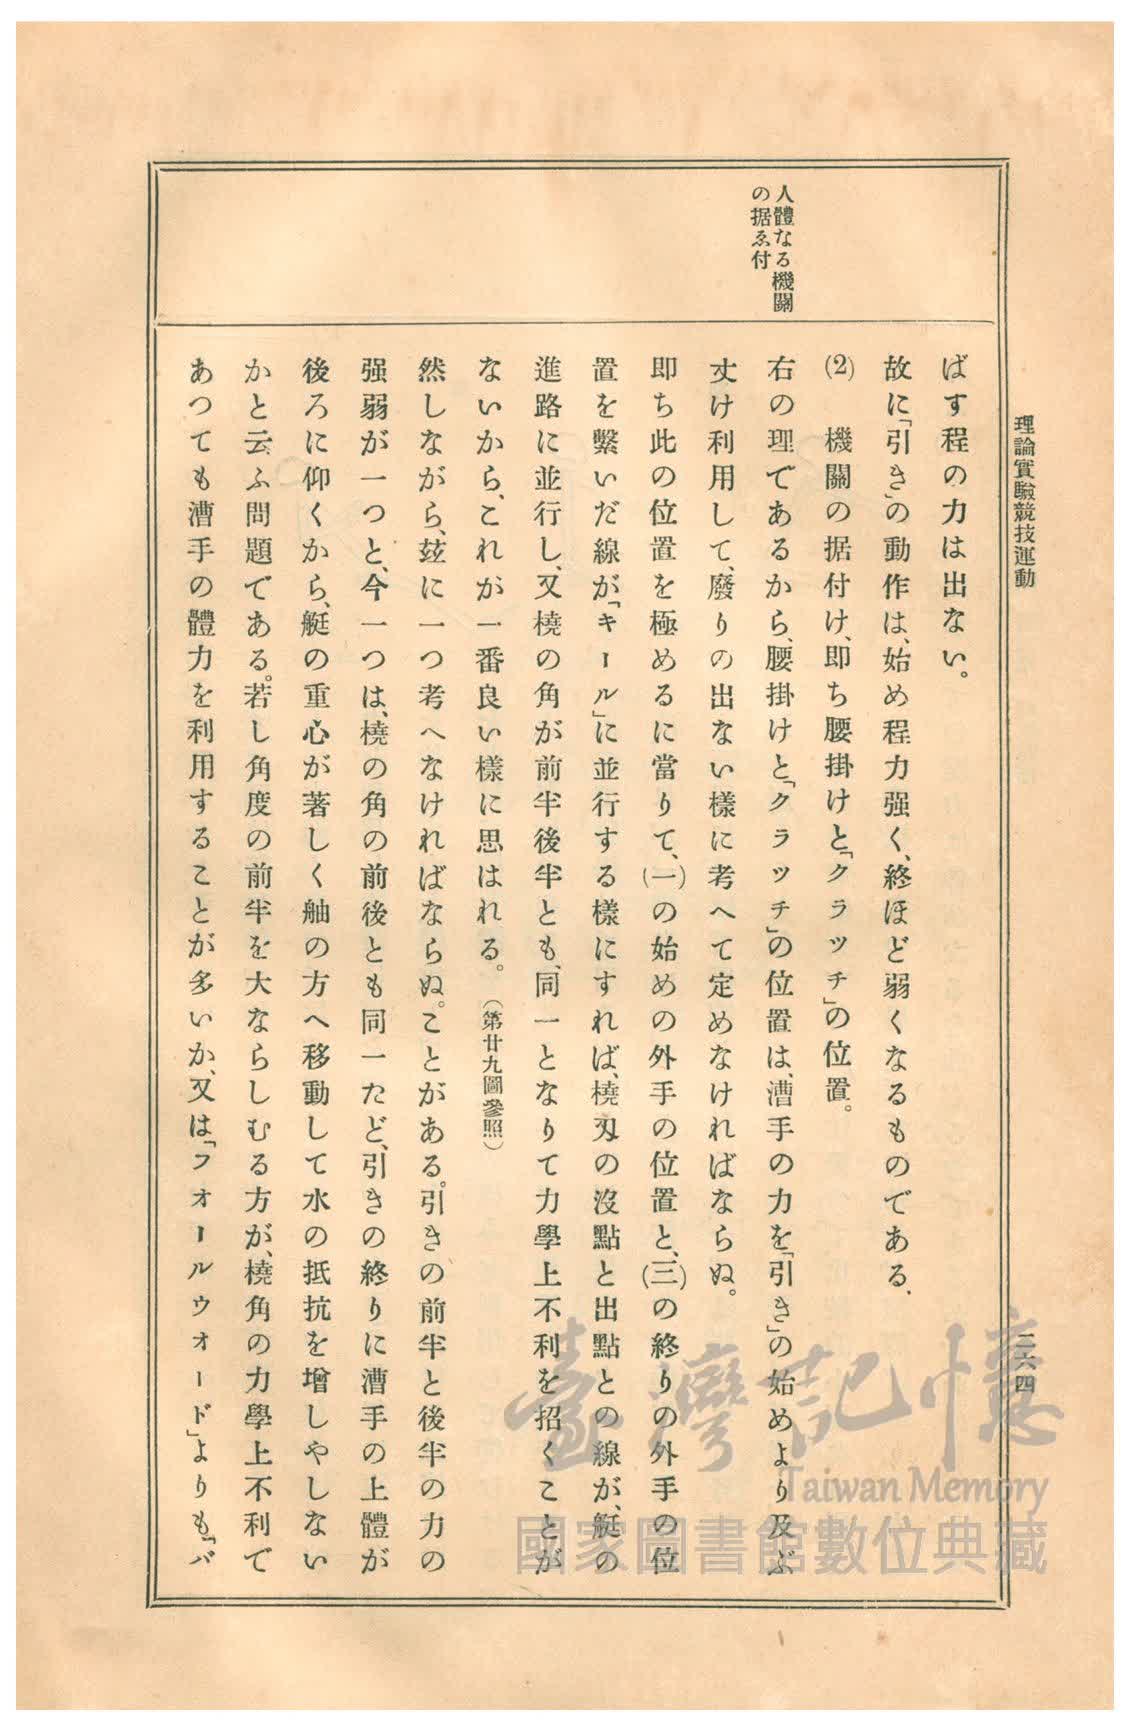 理論實驗競技運動
二六四
人體なる機關
の据ゑ付
ばす程の力は出ない。
故に「引き」の動作は、始め程力强く、終ほど弱くなるものである、
(2)　機關の据付け、即ち腰掛けと「クラッチ」の位置。
右の理であるから、腰掛けと「クラッチ」の位置は、漕手の力を「引き」の始めより及ぶ
丈け利用して、廢りの出ない樣に考へて定めなければならぬ。
即ち此の位置を極めるに當りて、(一)の始めの外手の位置と、(三)の終りの外手の位
置を繫いだ線が「キール」に並行する樣にすれば、橈刄の沒點と出點との線が、艇の
進路に並行し、又橈の角が前半後半とも、同一となりて力學上不利を招くことが
ないから、これが一番良い樣に思はれる。（第廿九圖參照）
然しながら、玆に一つ考へなければならぬ。ことがある。引きの前半と後半の力の
强弱が一つと、今一つは、橈の角の前後とも同一たど、引きの終りに漕手の上體が
後ろに仰くから、艇の重心が著しく舳の方へ移動して水の抵抗を增しやしない
かと云ふ問題である。若し角度の前半を大ならしむる方が、橈角の力學上不利で
あつても漕手の體力を利用することが多いか、又は「フオールウオード」よりも「バ
臺灣記憶
Taiwan Memory
國家圖書館數位典藏